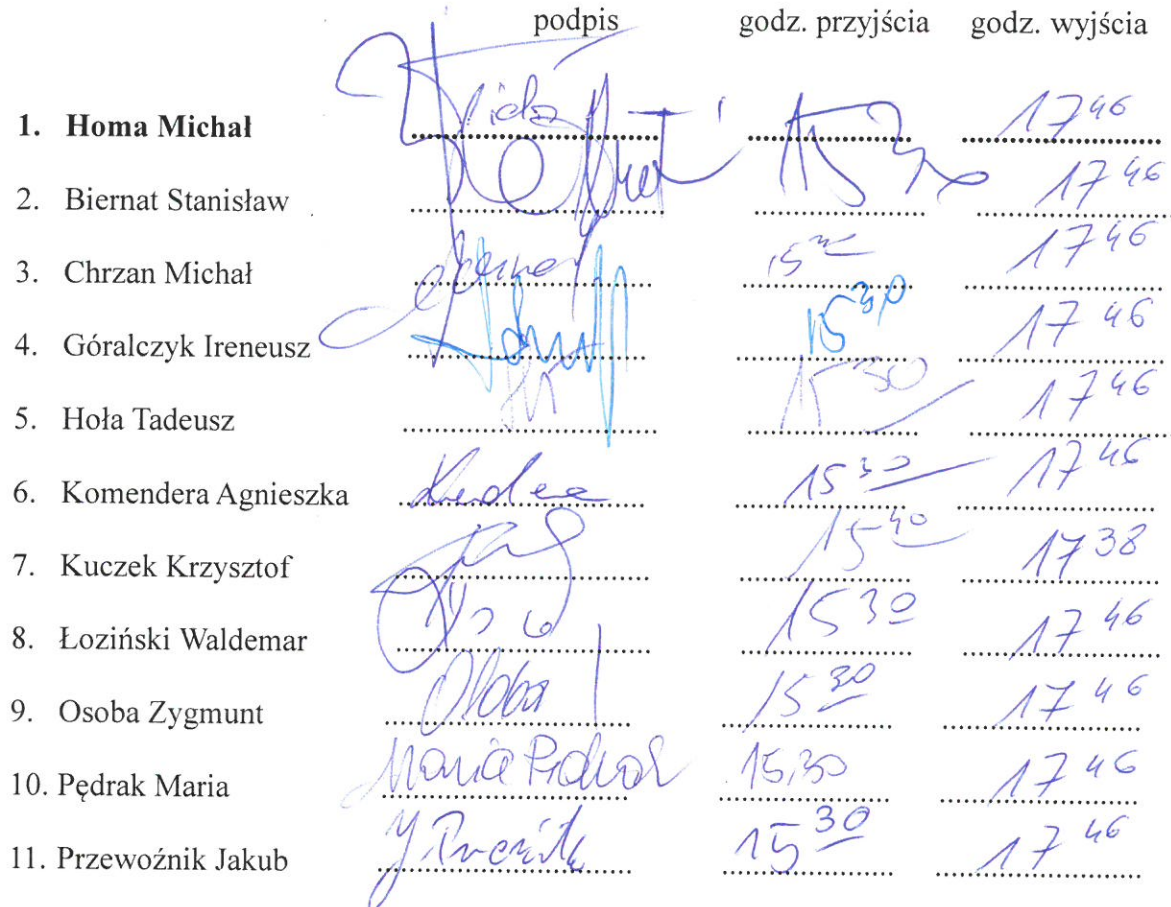 podpis godz. przyjścia godz. wyjścia
1. Homa Michał 17 46
2. Biernat Stanisław 15 30 17 46
3. Chrzan Michał 15 30 17 46
4. Góralczyk Ireneusz 15 30 17 46
5. Hoła Tadeusz 15 30 17 46
6. Komendera Agnieszka 15 30 17 46
7. Kuczek Krzysztof 15 40 17 38
8. Łoziński Waldemar 15 30 17 46
9. Osoba Zygmunt Osoba 15 30 17 46
10. Pędrak Maria Maria Pędrak 15,30 17 46
11. Przewoźnik Jakub 15 30 17 46